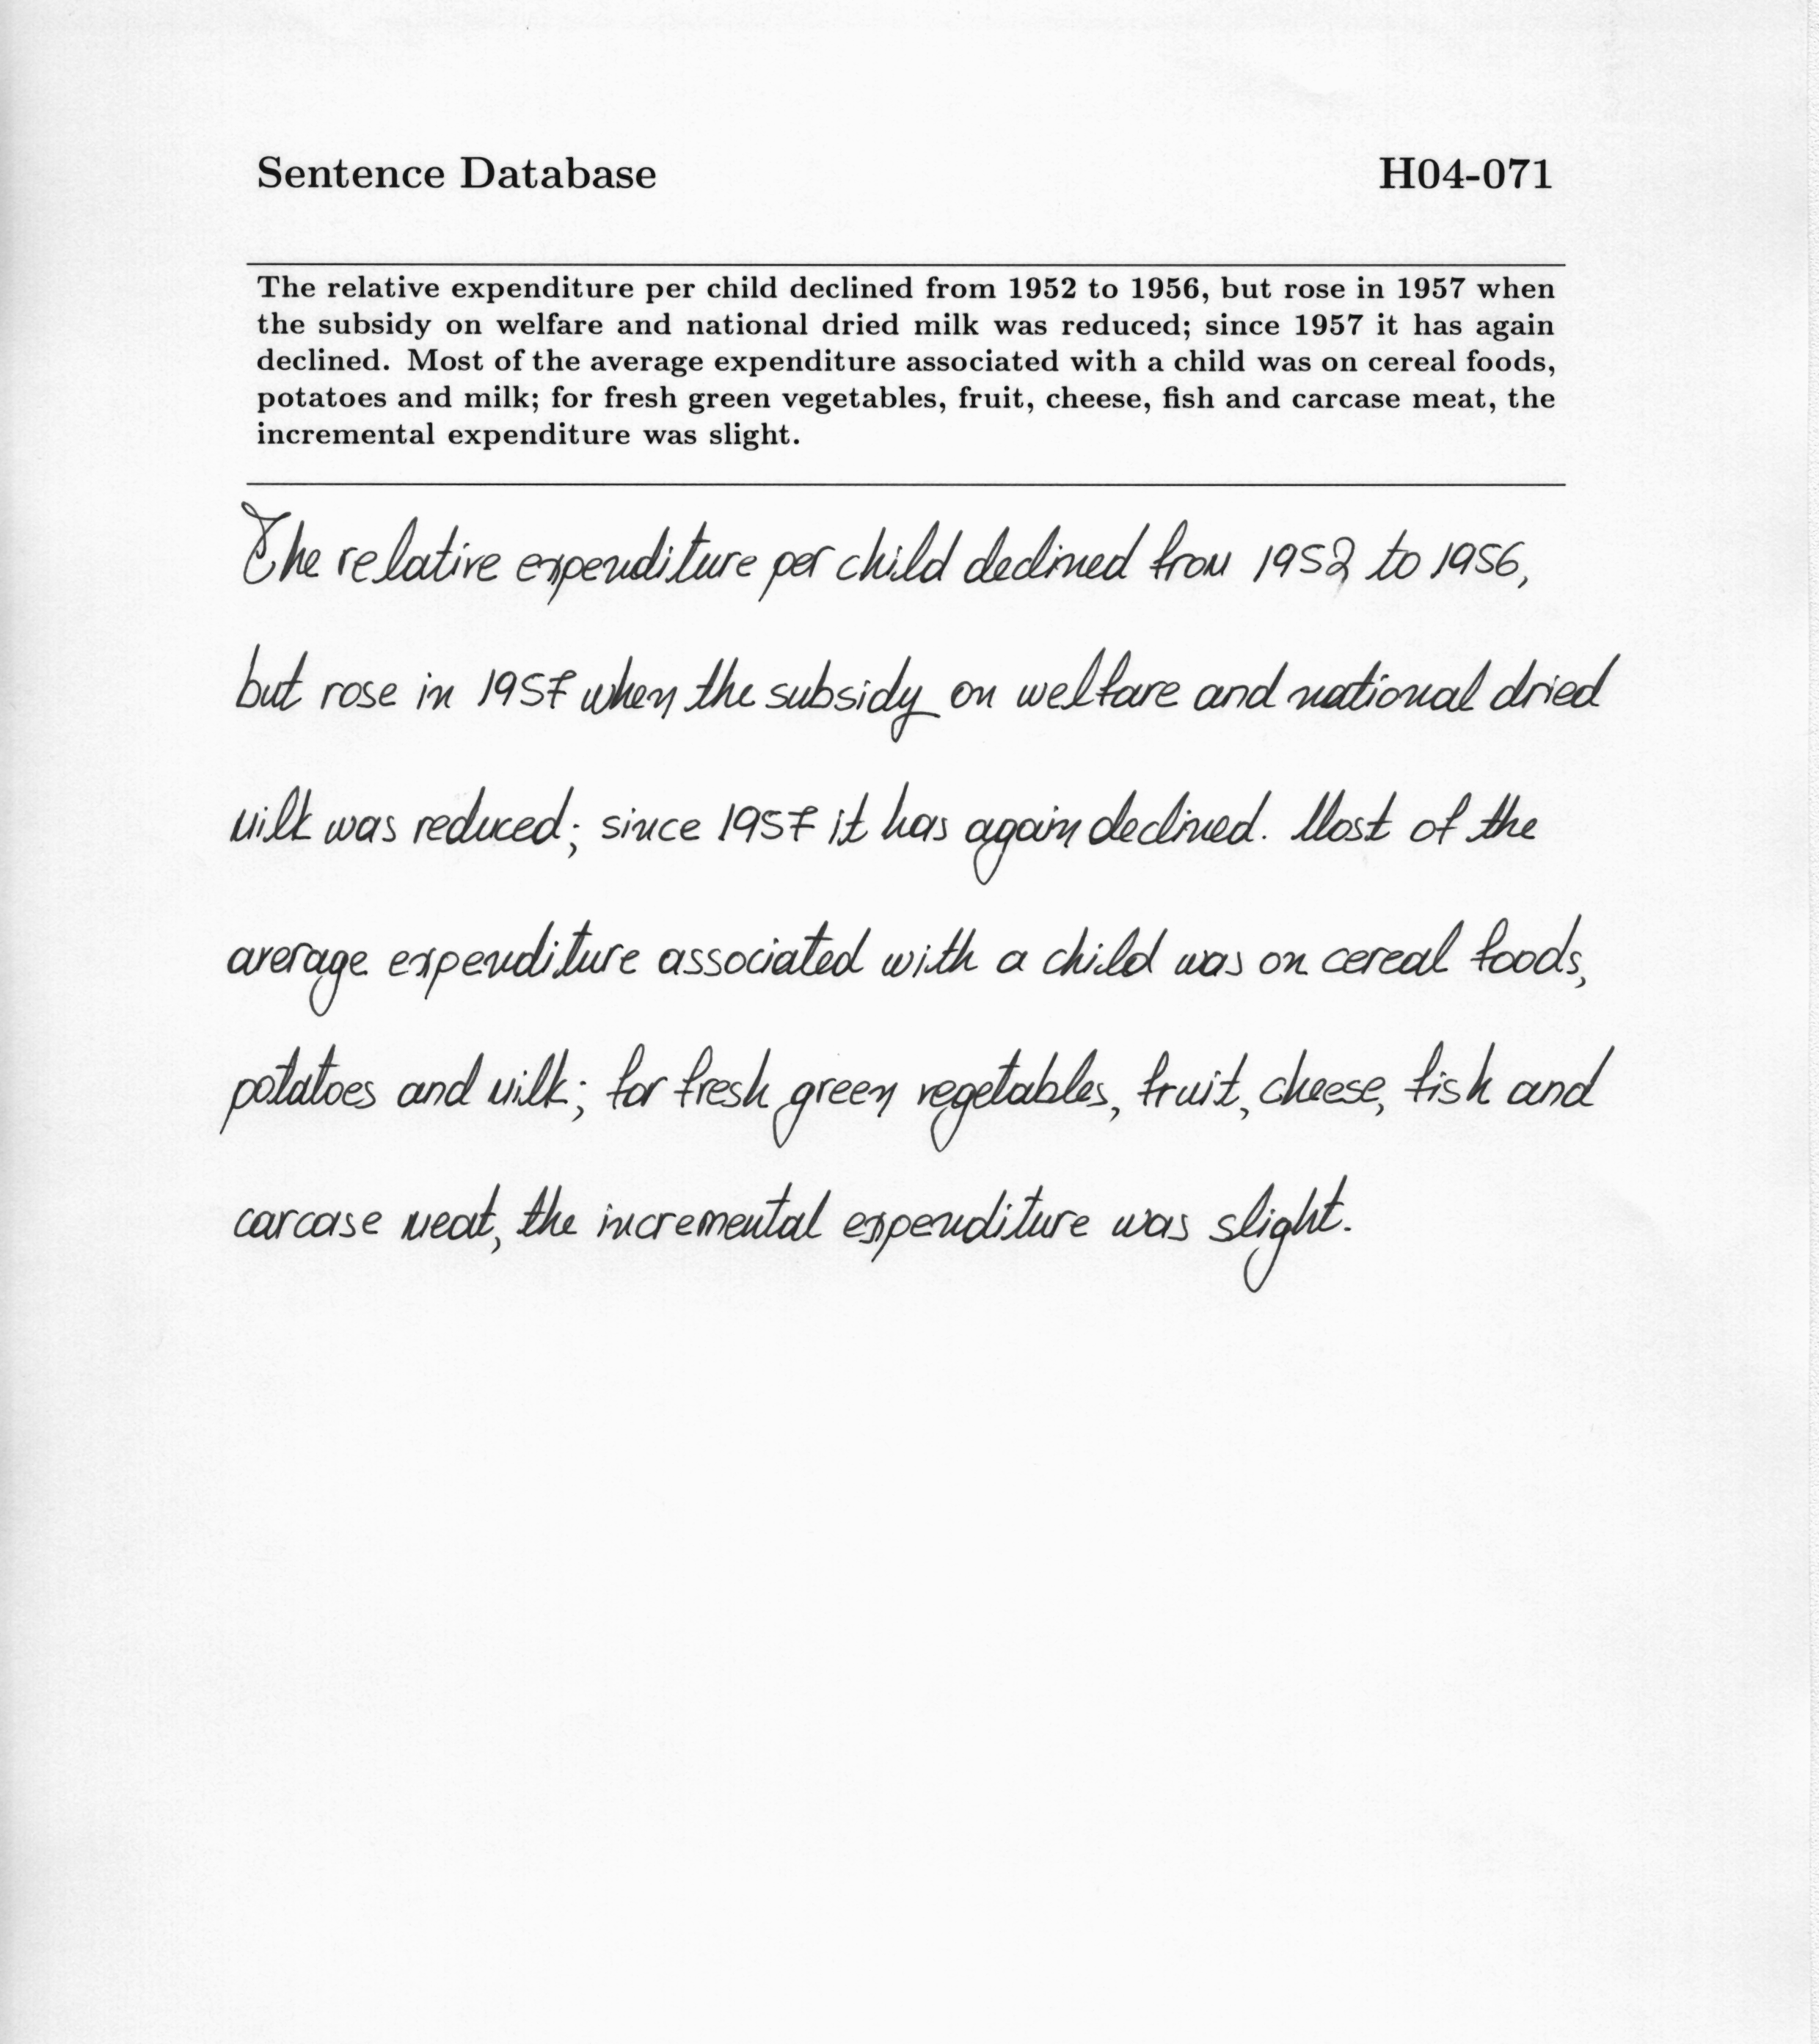 Sentence Database H04-071
The relative expenditure per child declined from 1952 to 1956, but rose in 1957 when
the subsidy on welfare and national dried milk was reduced; since 1957 it has again
declined. Most of the average expenditure associated with a child was on cereal foods,
potatoes and milk; for fresh green vegetables, fruit, cheese, fish and carcase meat, the
incremental expenditure was slight.
The relative expenditure per child declined from 1952 to 1956,
but rose in 1957 when the subsidy on welfare and national dried
milk was reduced; since 1957 it has again declined. Most of the
average expenditure associated with a child was on cereal foods,
potatoes and milk; for fresh green vegetables, fruit, cheese, fish and
carcase meat, the incremental expenditure was slight.